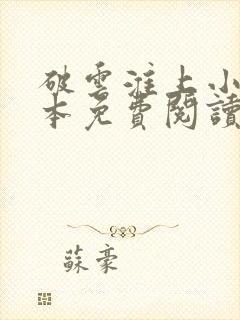 破雲淮上小
本免費閱讀
蘇豪